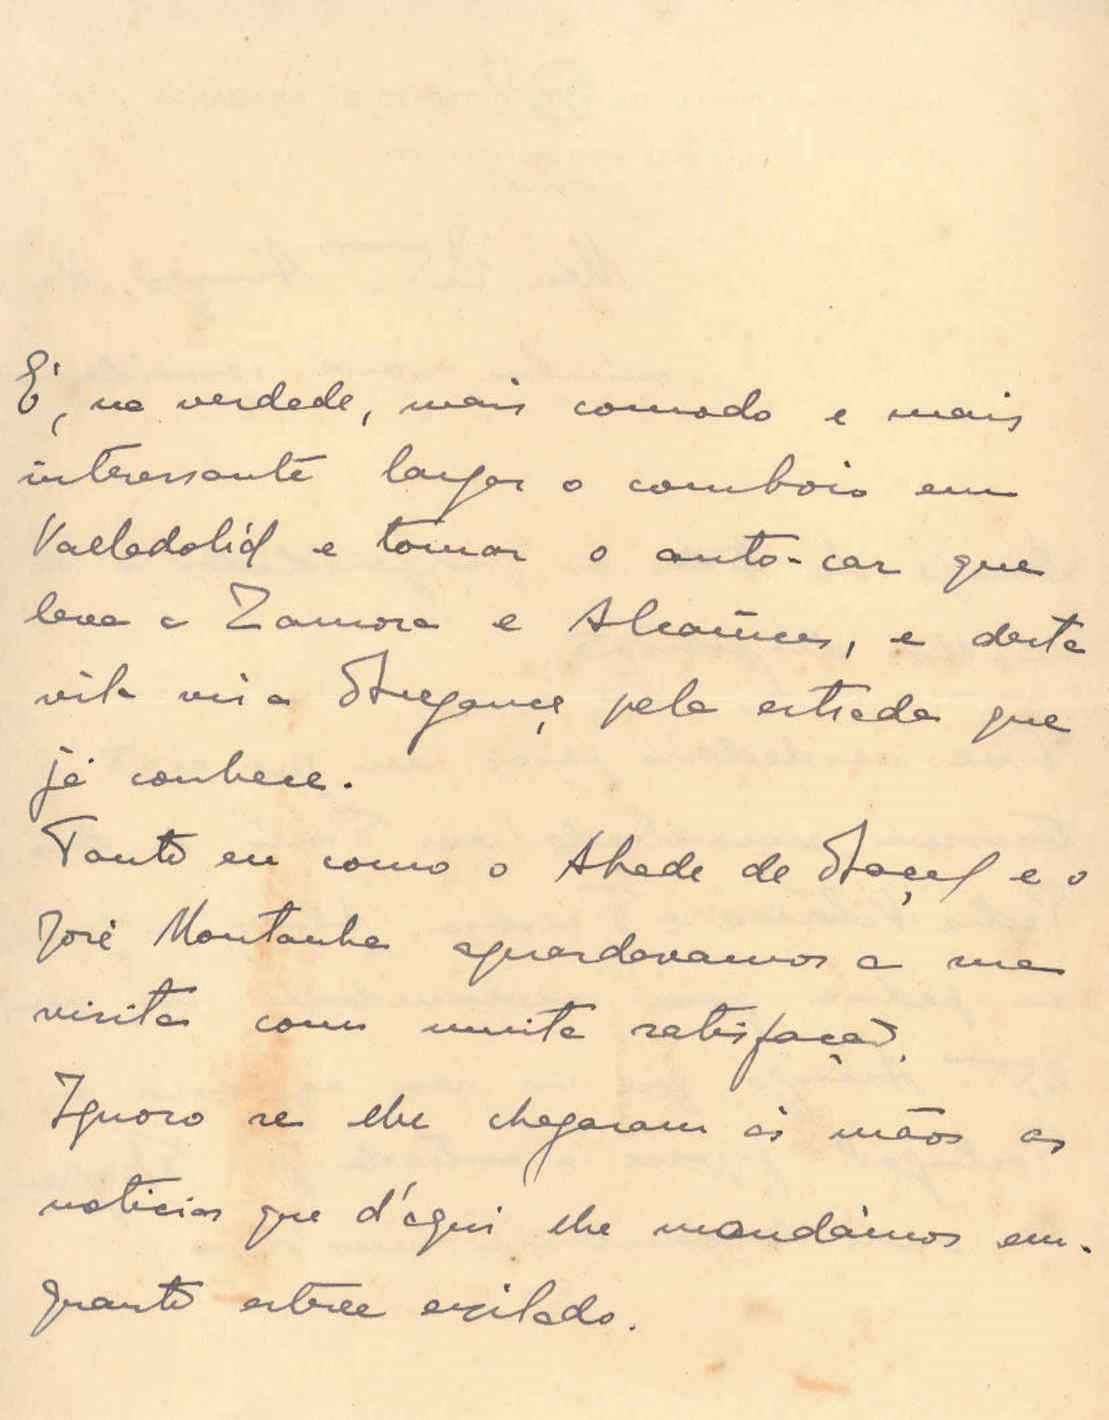 É, na verdade, mais comodo e mais
interessante largar o comboio em
Valladolid e tomar o auto-car que
leva a Zamora e Alcañices, e desta
vila vir a Bragança pela estrada que
já conhece.
Tanto eu como o Abade de Baçal e o
José Montanha aguardavamos a sua
visita com muita satisfação.
Ignoro se lhe chegaram às mãos as
noticias que d'aqui lhe mandámos em-
quanto esteve exilado.